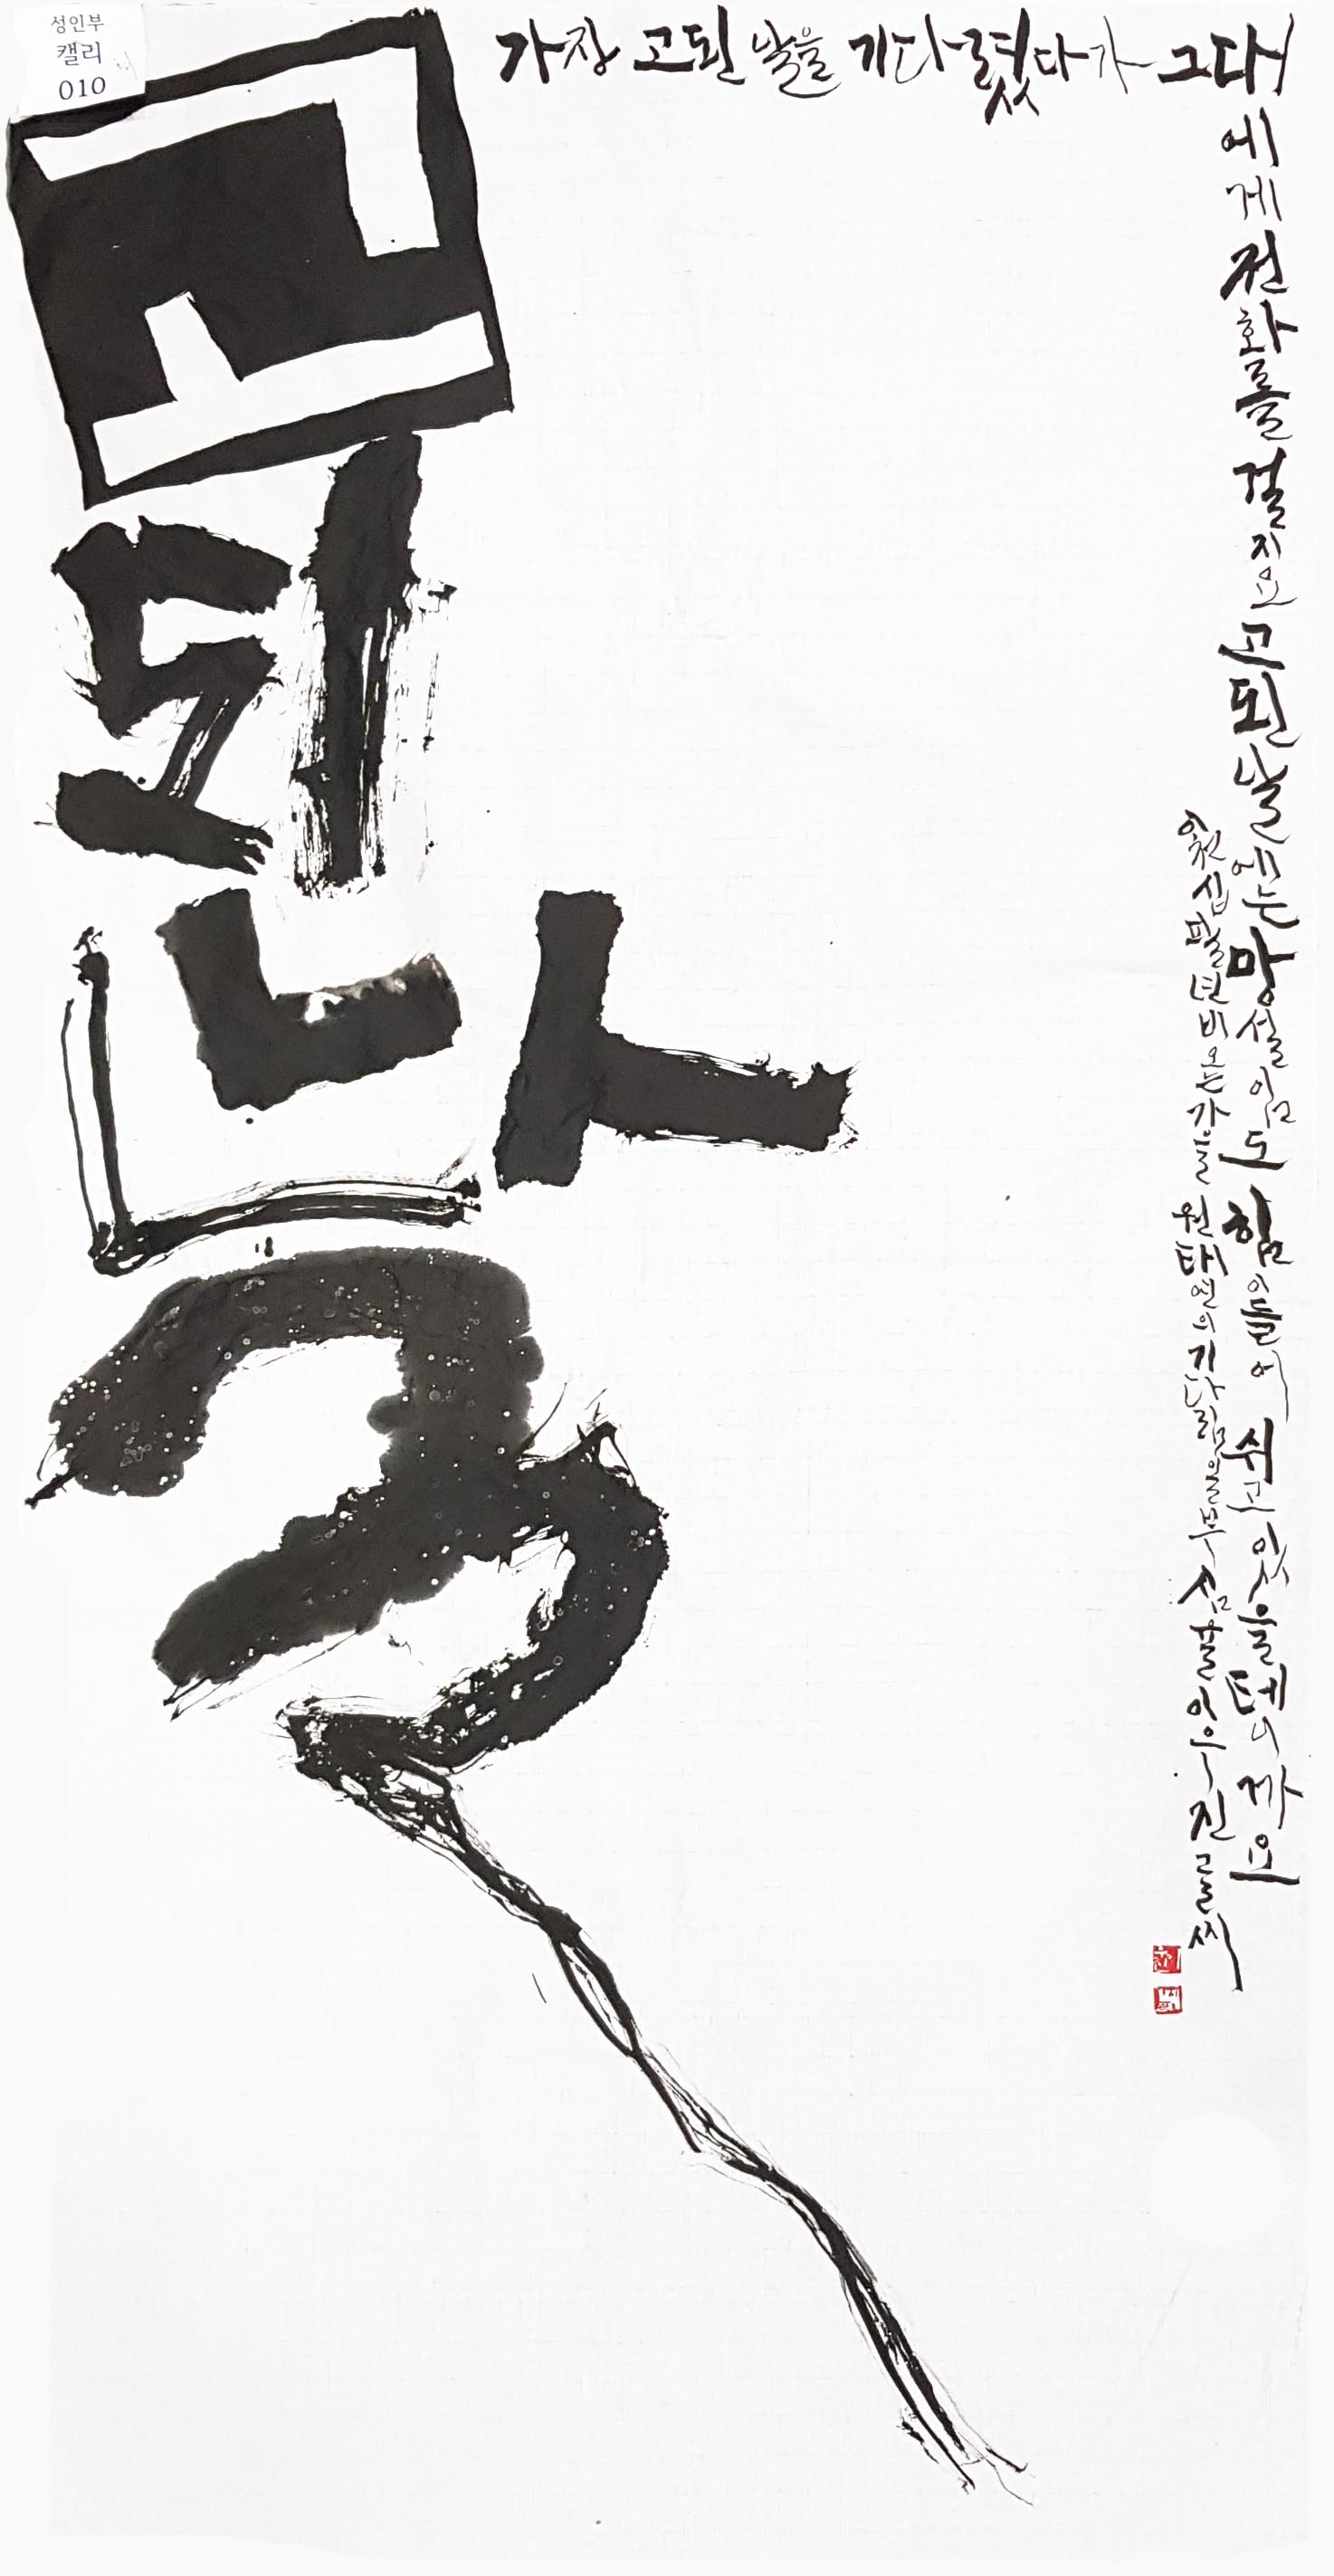 성인부
캘리
010
고된날
가장 고된 날을 기다렸다가 그대
에게 전화를 걸지요 고된 날에는 망설임도 힘이 들어 쉬고 있을 테니까요
이천십팔년 비오는 가을 원태연의 기다림을 이우진 글씨